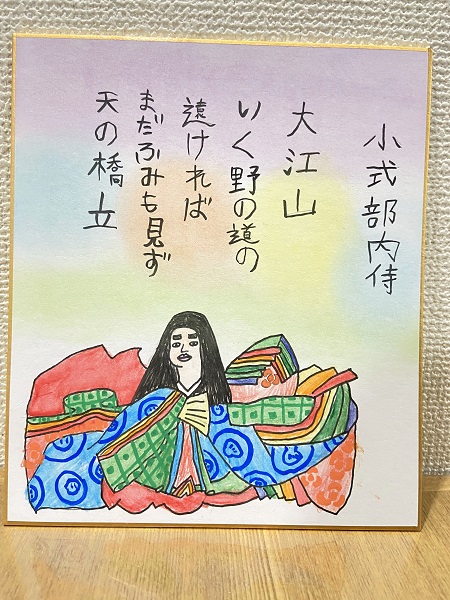 小式部内侍
大江山
いく野の道の
遠ければ
まだふみも見ず
天の橋立